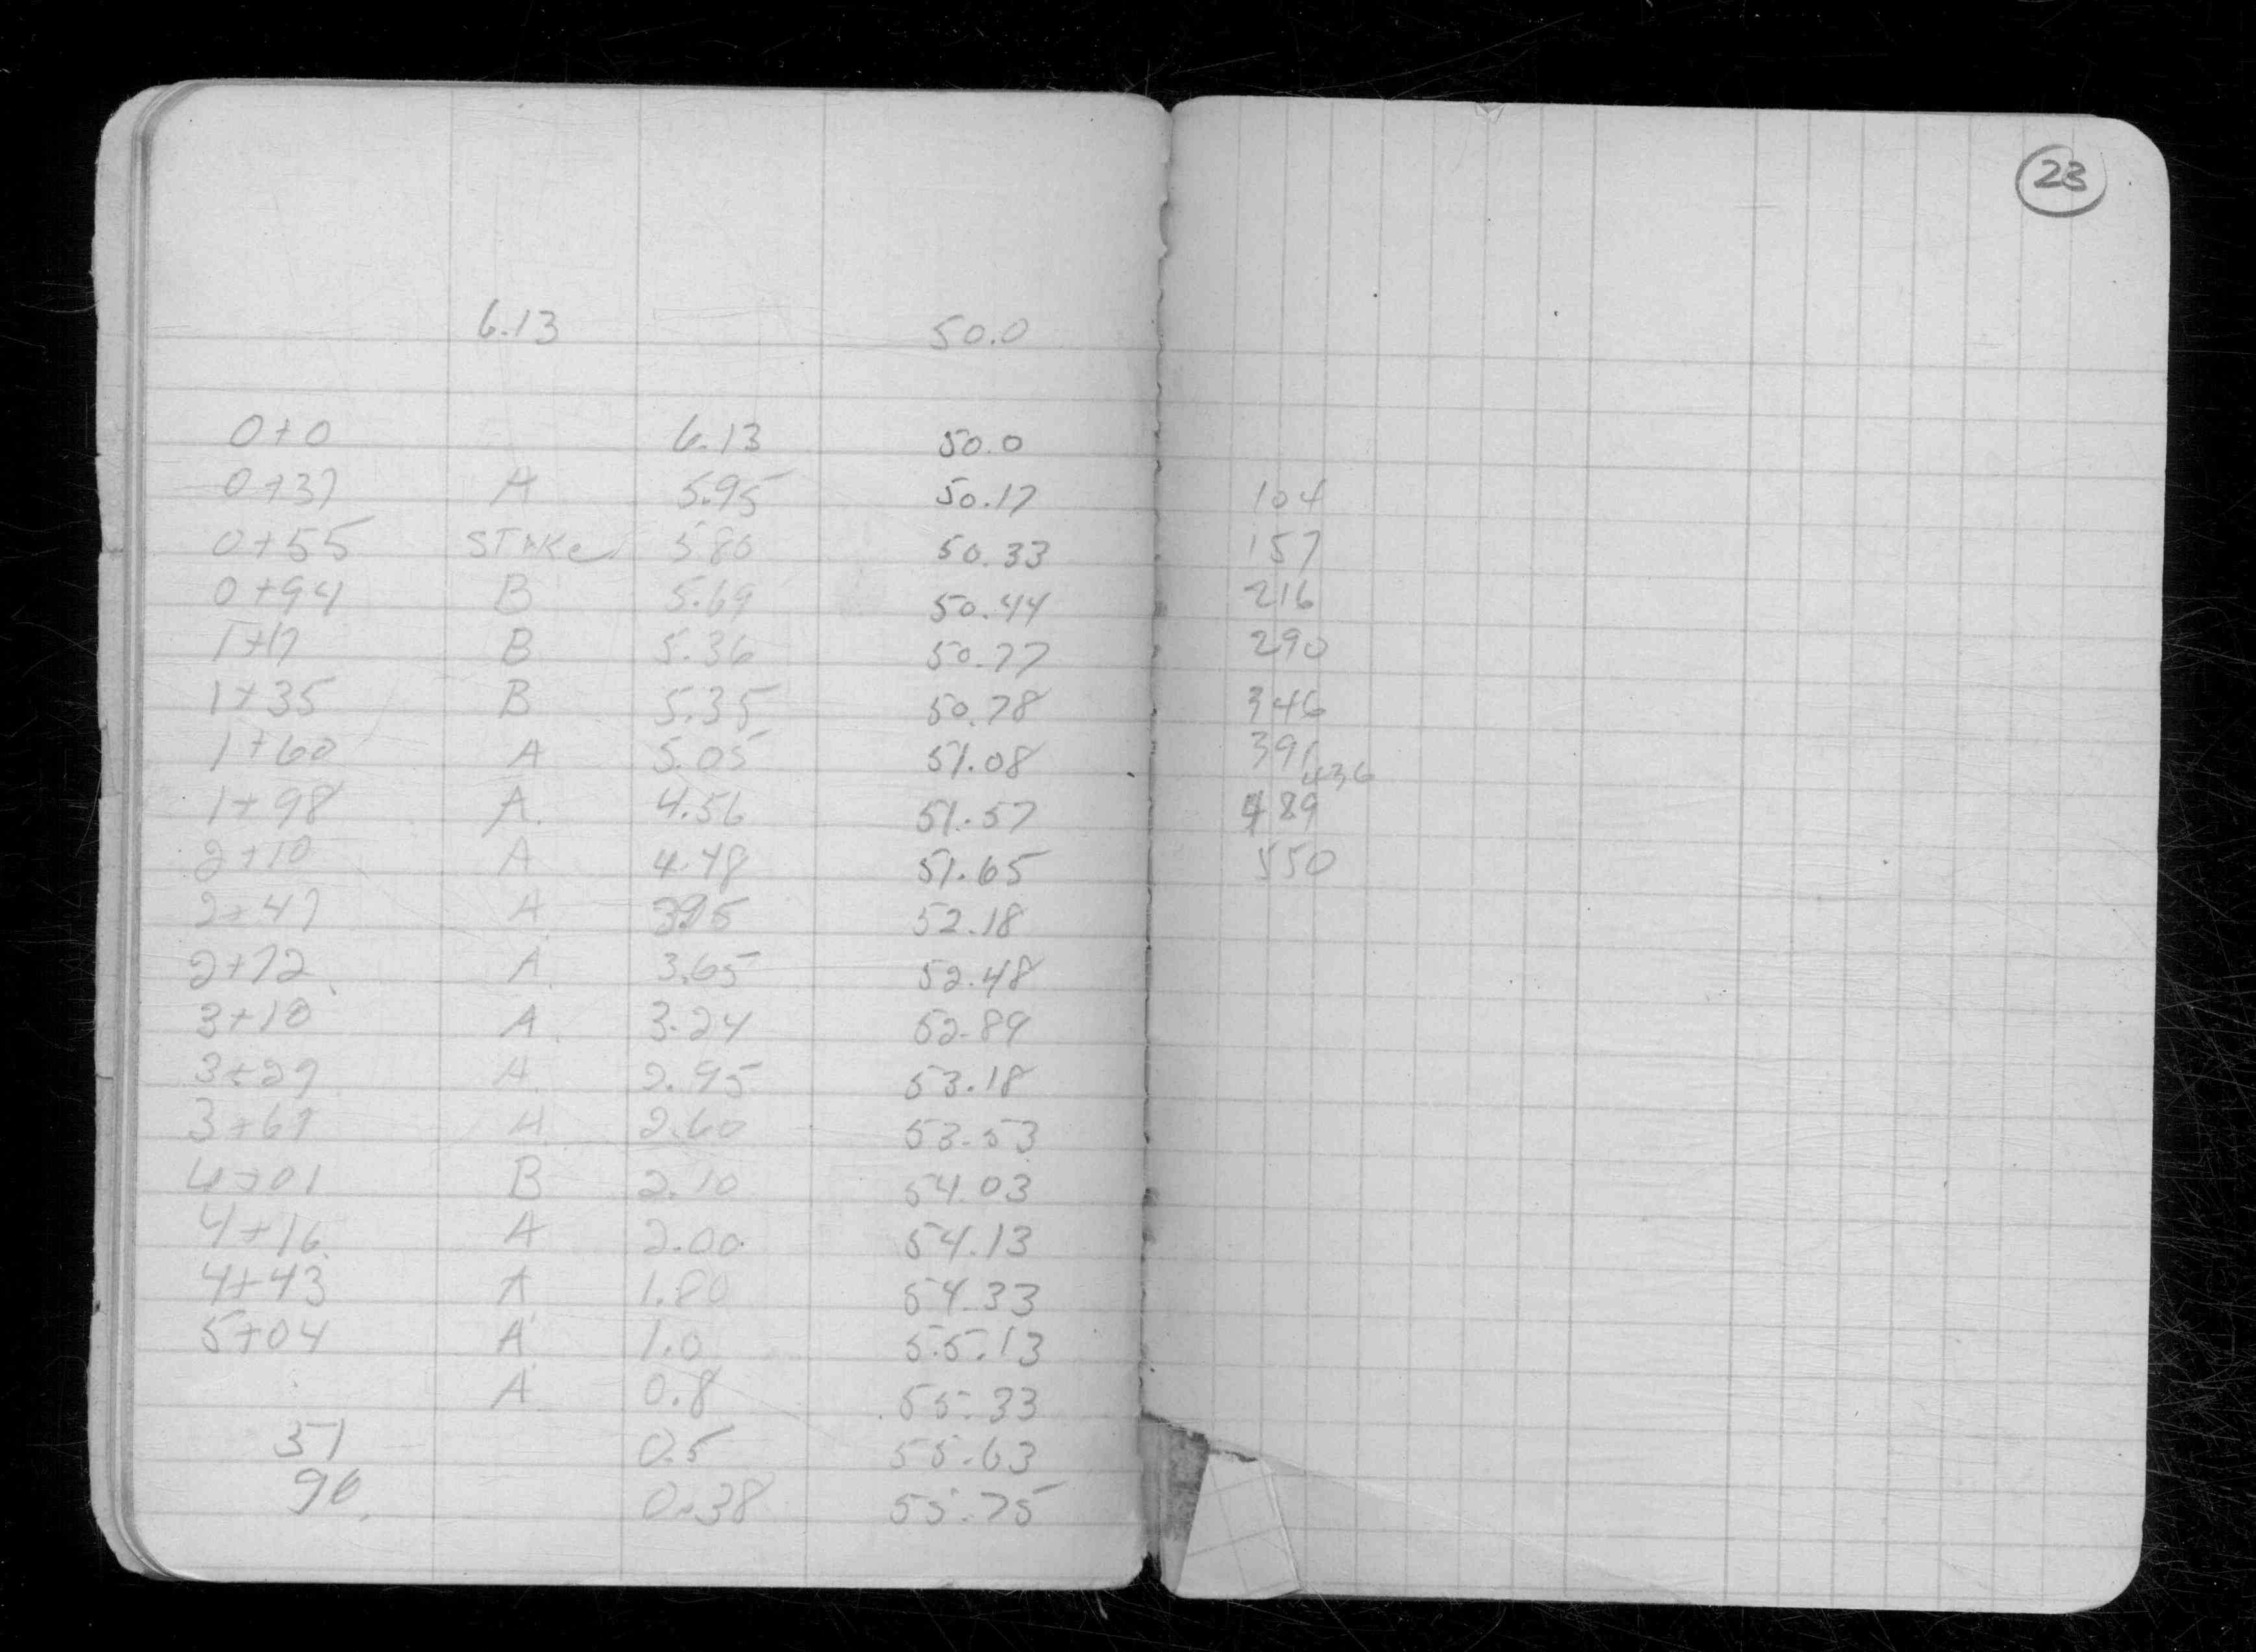 23
6.13 50.0
0+0 6.13 50.0
0+37 A 5.95 50.17
0+55 STAKe 5.80 50.33
0+94 B 5.69 50.44
1+17 B 5.36 50.77
1+35 B 5.35 50.78
1+60 A 5.05 51.08
1+98 A 4.56 51.57
2+10 A 4.48 51.65
2+47 A 3.95 52.18
2+72 A 3.65 52.48
3+10 A 3.24 52.89
3+29 A 2.95 53.18
3+67 A 2.60 53.53
4+01 B 2.10 54.03
4+16 A 2.00 54.13
4+43 A 1.80 54.33
5+04 A 1.0 55.13
A 0.8 55.33
51 0.5 55.63
96 0.38 55.75
104
157
216
290
346
391
436
489
550